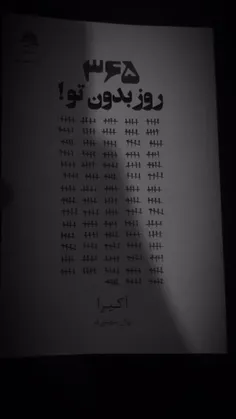 ۳۶۵
روز بدون تو!
آکیرا